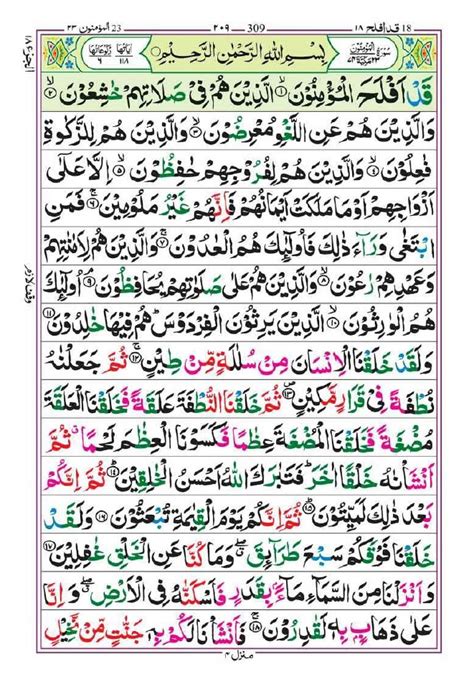 18 قد افلح ۱۸
309
۳۰۹
23 المؤمنون ۲۳
سُوْرَةُ الْمُؤْمِنُوْنَ
بِسْمِ اللّٰهِ الرَّحْمٰنِ الرَّحِيْمِ
اٰيَاتُهَا ۱۱۸
رُكُوْعَاتُهَا ۶
قَدْ اَفْلَحَ الْمُؤْمِنُوْنَ ۙ۱ الَّذِيْنَ هُمْ فِيْ صَلَاتِهِمْ خٰشِعُوْنَ ۙ۲
وَالَّذِيْنَ هُمْ عَنِ اللَّغْوِ مُعْرِضُوْنَ ۙ۳ وَالَّذِيْنَ هُمْ لِلزَّكٰوةِ
فٰعِلُوْنَ ۙ۴ وَالَّذِيْنَ هُمْ لِفُرُوْجِهِمْ حٰفِظُوْنَ ۙ۵ اِلَّا عَلٰٓى
اَزْوَاجِهِمْ اَوْ مَا مَلَكَتْ اَيْمَانُهُمْ فَاِنَّهُمْ غَيْرُ مَلُوْمِيْنَ ۚ۶ فَمَنِ
ابْتَغٰى وَرَآءَ ذٰلِكَ فَاُولٰٓئِكَ هُمُ الْعٰدُوْنَ ۚ۷ وَالَّذِيْنَ هُمْ لِاَمٰنٰتِهِمْ
وَعَهْدِهِمْ رٰعُوْنَ ۙ۸ وَالَّذِيْنَ هُمْ عَلٰى صَلَوٰتِهِمْ يُحَافِظُوْنَ ۘ۹ اُولٰٓئِكَ
هُمُ الْوٰرِثُوْنَ ۙ۱۰ الَّذِيْنَ يَرِثُوْنَ الْفِرْدَوْسَ ؕ هُمْ فِيْهَا خٰلِدُوْنَ ۱۱
وَلَقَدْ خَلَقْنَا الْاِنْسَانَ مِنْ سُلٰلَةٍ مِّنْ طِيْنٍ ۚ۱۲ ثُمَّ جَعَلْنٰهُ
نُطْفَةً فِيْ قَرَارٍ مَّكِيْنٍ ۪۱۳ ثُمَّ خَلَقْنَا النُّطْفَةَ عَلَقَةً فَخَلَقْنَا الْعَلَقَةَ
مُضْغَةً فَخَلَقْنَا الْمُضْغَةَ عِظٰمًا فَكَسَوْنَا الْعِظٰمَ لَحْمًا ۗ ثُمَّ
اَنْشَاْنٰهُ خَلْقًا اٰخَرَ ؕ فَتَبٰرَكَ اللّٰهُ اَحْسَنُ الْخٰلِقِيْنَ ؕ۱۴ ثُمَّ اِنَّكُمْ
بَعْدَ ذٰلِكَ لَمَيِّتُوْنَ ؕ۱۵ ثُمَّ اِنَّكُمْ يَوْمَ الْقِيٰمَةِ تُبْعَثُوْنَ ۱۶ وَلَقَدْ
خَلَقْنَا فَوْقَكُمْ سَبْعَ طَرَآئِقَ ۖ وَمَا كُنَّا عَنِ الْخَلْقِ غٰفِلِيْنَ ۱۷
وَاَنْزَلْنَا مِنَ السَّمَآءِ مَآءًۢ بِقَدَرٍ فَاَسْكَنّٰهُ فِي الْاَرْضِ ۖ وَاِنَّا
عَلٰى ذَهَابٍۢ بِهٖ لَقٰدِرُوْنَ ۚ۱۸ فَاَنْشَاْنَا لَكُمْ بِهٖ جَنّٰتٍ مِّنْ نَّخِيْلٍ
منزل ۴